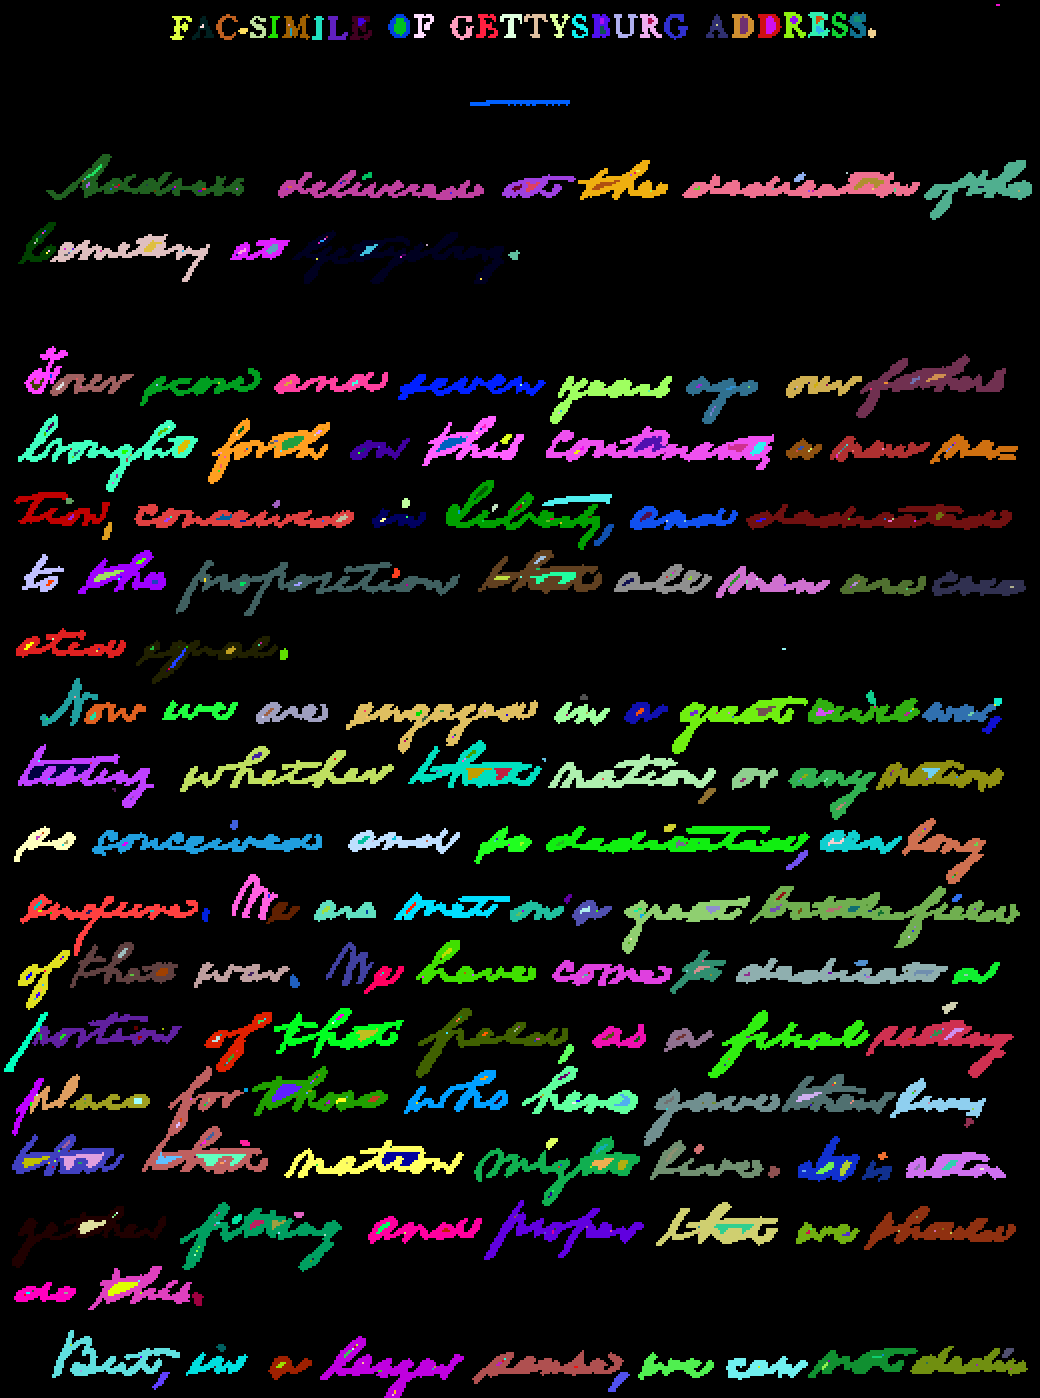 FAC-SIMILE OF GETTYSBURG ADDRESS.
Address delivered at the dedication of the
Cemetery at Gettysburg.
Four score and seven years ago our fathers
brought forth on this continent, a new na=
tion, conceived in Liberty, and dedicated
to the proposition that all men are cre=
ated equal.
Now we are engaged in a great civil war,
testing whether that nation, or any nation
so conceived and so dedicated, can long
endure. We are met on a great battle field
of that war. We have come to dedicate a
portion of that field, as a final resting
place for those who here gave their lives
that that nation might live. It is alto
gether fitting and proper that we should
do this.
But, in a larger sense, we can not dedi